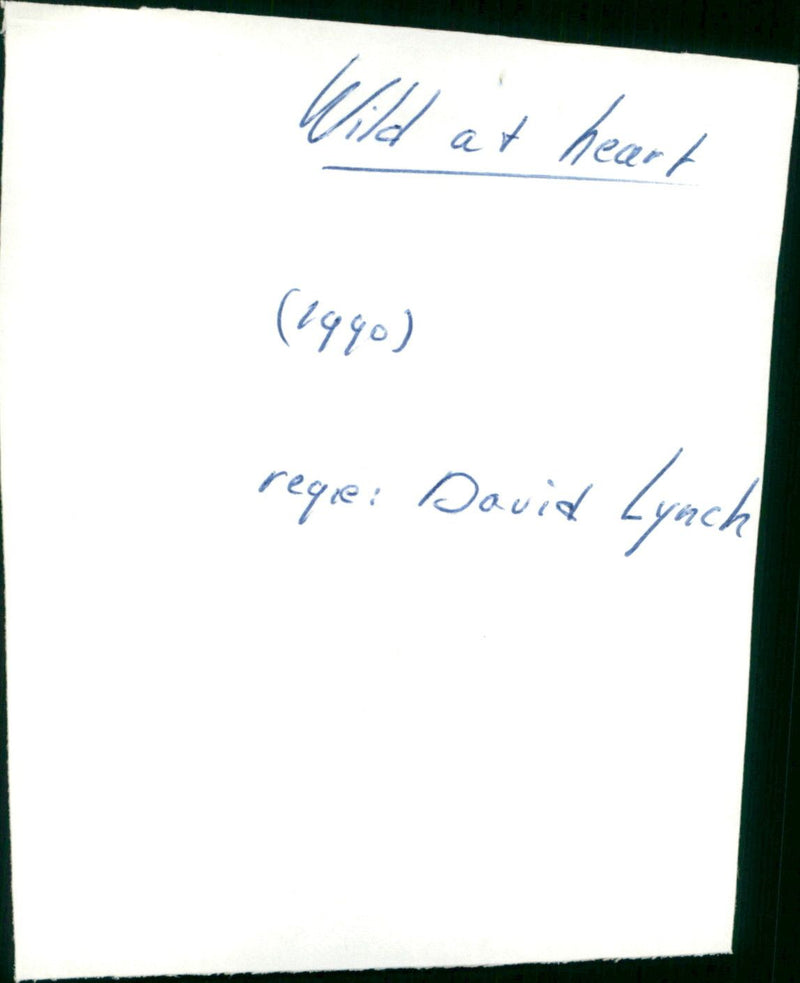 Wild at heart
(1990)
regie: David Lynch